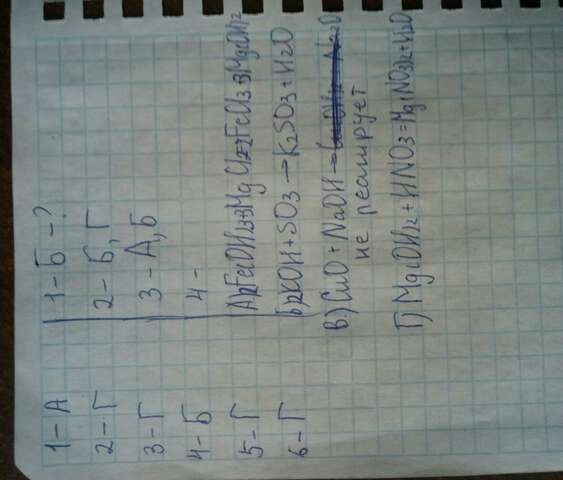 1 – А
2 – Г
3 – Г
4 – Б
5 – Г
6 – Г
1 – Б – ?
2 – Б, Г
3 – А, Б
4 –
А) 2Fe(OH)3 3MgCl2 2FeCl3 3Mg(OH)2
Б) 2KOH + SO3 → K2SO3 + H2O
В) CuO + NaOH →
не реагирует
Г) Mg(OH)2 + HNO3 = Mg(NO3)2 + H2O